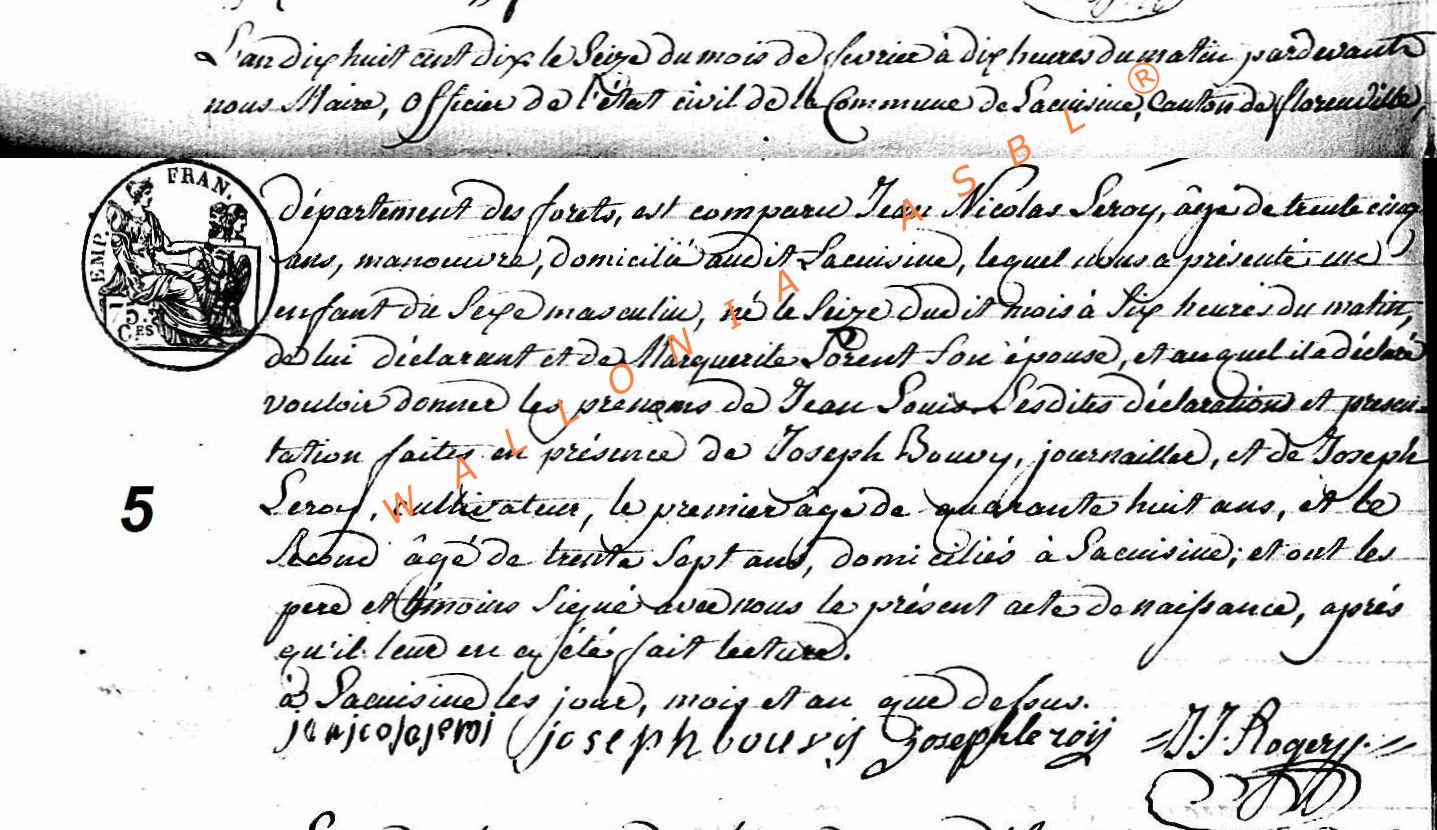 L'an dix huit cent dix le Seize du mois de fevrier à dix heures du matin pardevant
nous Maire, Officier de l'état civil de la Commune de Lacuisine, Canton de florenville,
EMP. FRAN.
75. C.ES
département des forets, est comparu Jean Nicolas Leroy, âgé de trente cinq
ans, manoeuvre, domicilié audit Lacuisine, lequel nous a présenté un
enfant du Sexe masculin, né le Seize dudit mois à Six heures du matin,
de lui déclarant et de Marguerite Porent Son épouse, et auquel il a déclaré
vouloir donner les prenoms de Jean Louis. Lesdites déclarations et presen-
tation faites en présence de Joseph Bouvy, journaillier, et de Joseph
Leroy, cultivateur, le premier âgé de quarante huit ans, et le
Second âgé de trente Sept ans, domiciliés à Lacuisine; et ont les
5
pere et témoins Signé avec nous le présent acte de naissance, après
qu'il leur en a été fait lecture.
à Lacuisine les jour, mois et an que dessus.
joseph bouvij joseph leroij J.J. Rogery
WALLONIA ASBL ®